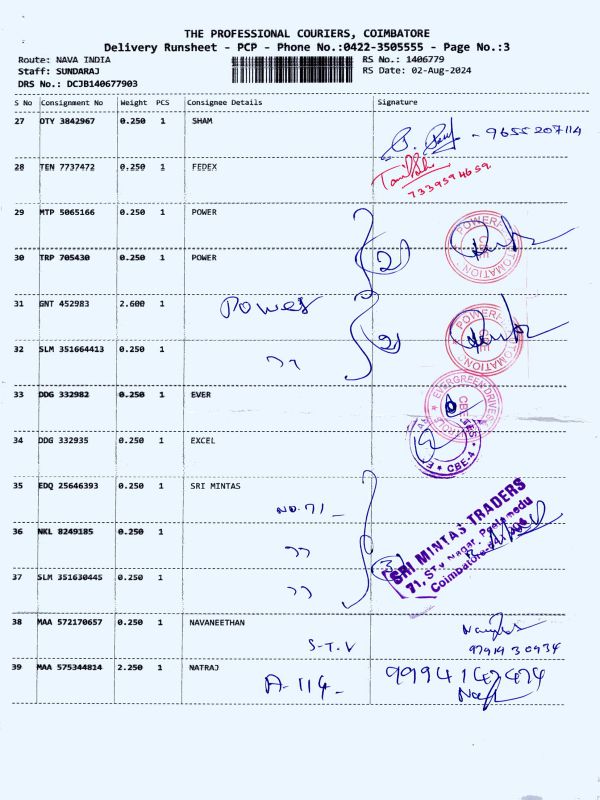 THE PROFESSIONAL COURIERS, COIMBATORE
Delivery Runsheet - PCP - Phone No.:0422-3505555 - Page No.:3
Route: NAVA INDIA RS No.: 1406779
Staff: SUNDARAJ RS Date: 02-Aug-2024
DRS No.: DCJB140677903
S No Consignment No Weight PCS Consignee Details Signature
27 OTY 3842967 0.250 1 SHAM - 9655207114
28 TEN 7737472 0.250 1 FEDEX
7339594659
29 MTP 5065166 0.250 1 POWER
30 TRP 705430 0.250 1 POWER (2)
31 GNT 452983 2.600 1 Power
32 SLM 351664413 0.250 1 " (2)
33 DDG 332982 0.250 1 EVER
EVERGREEN DRIVES
34 DDG 332935 0.250 1 EXCEL
CBE-4
35 EDQ 25646393 0.250 1 SRI MINTAS
NO-71
36 NKL 8249185 0.250 1 "
(3)
SRI MINTAS TRADERS
71, ST.V Nagar, Peelamedu
37 SLM 351630445 0.250 1 "
38 MAA 572170657 0.250 1 NAVANEETHAN
S-T.V 9791930934
39 MAA 575344814 2.250 1 NATRAJ
A-114 - 9994147474